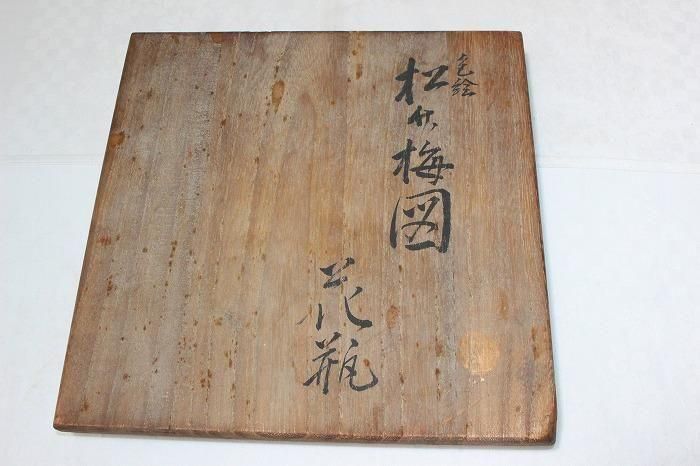 色絵
松竹梅図
花瓶